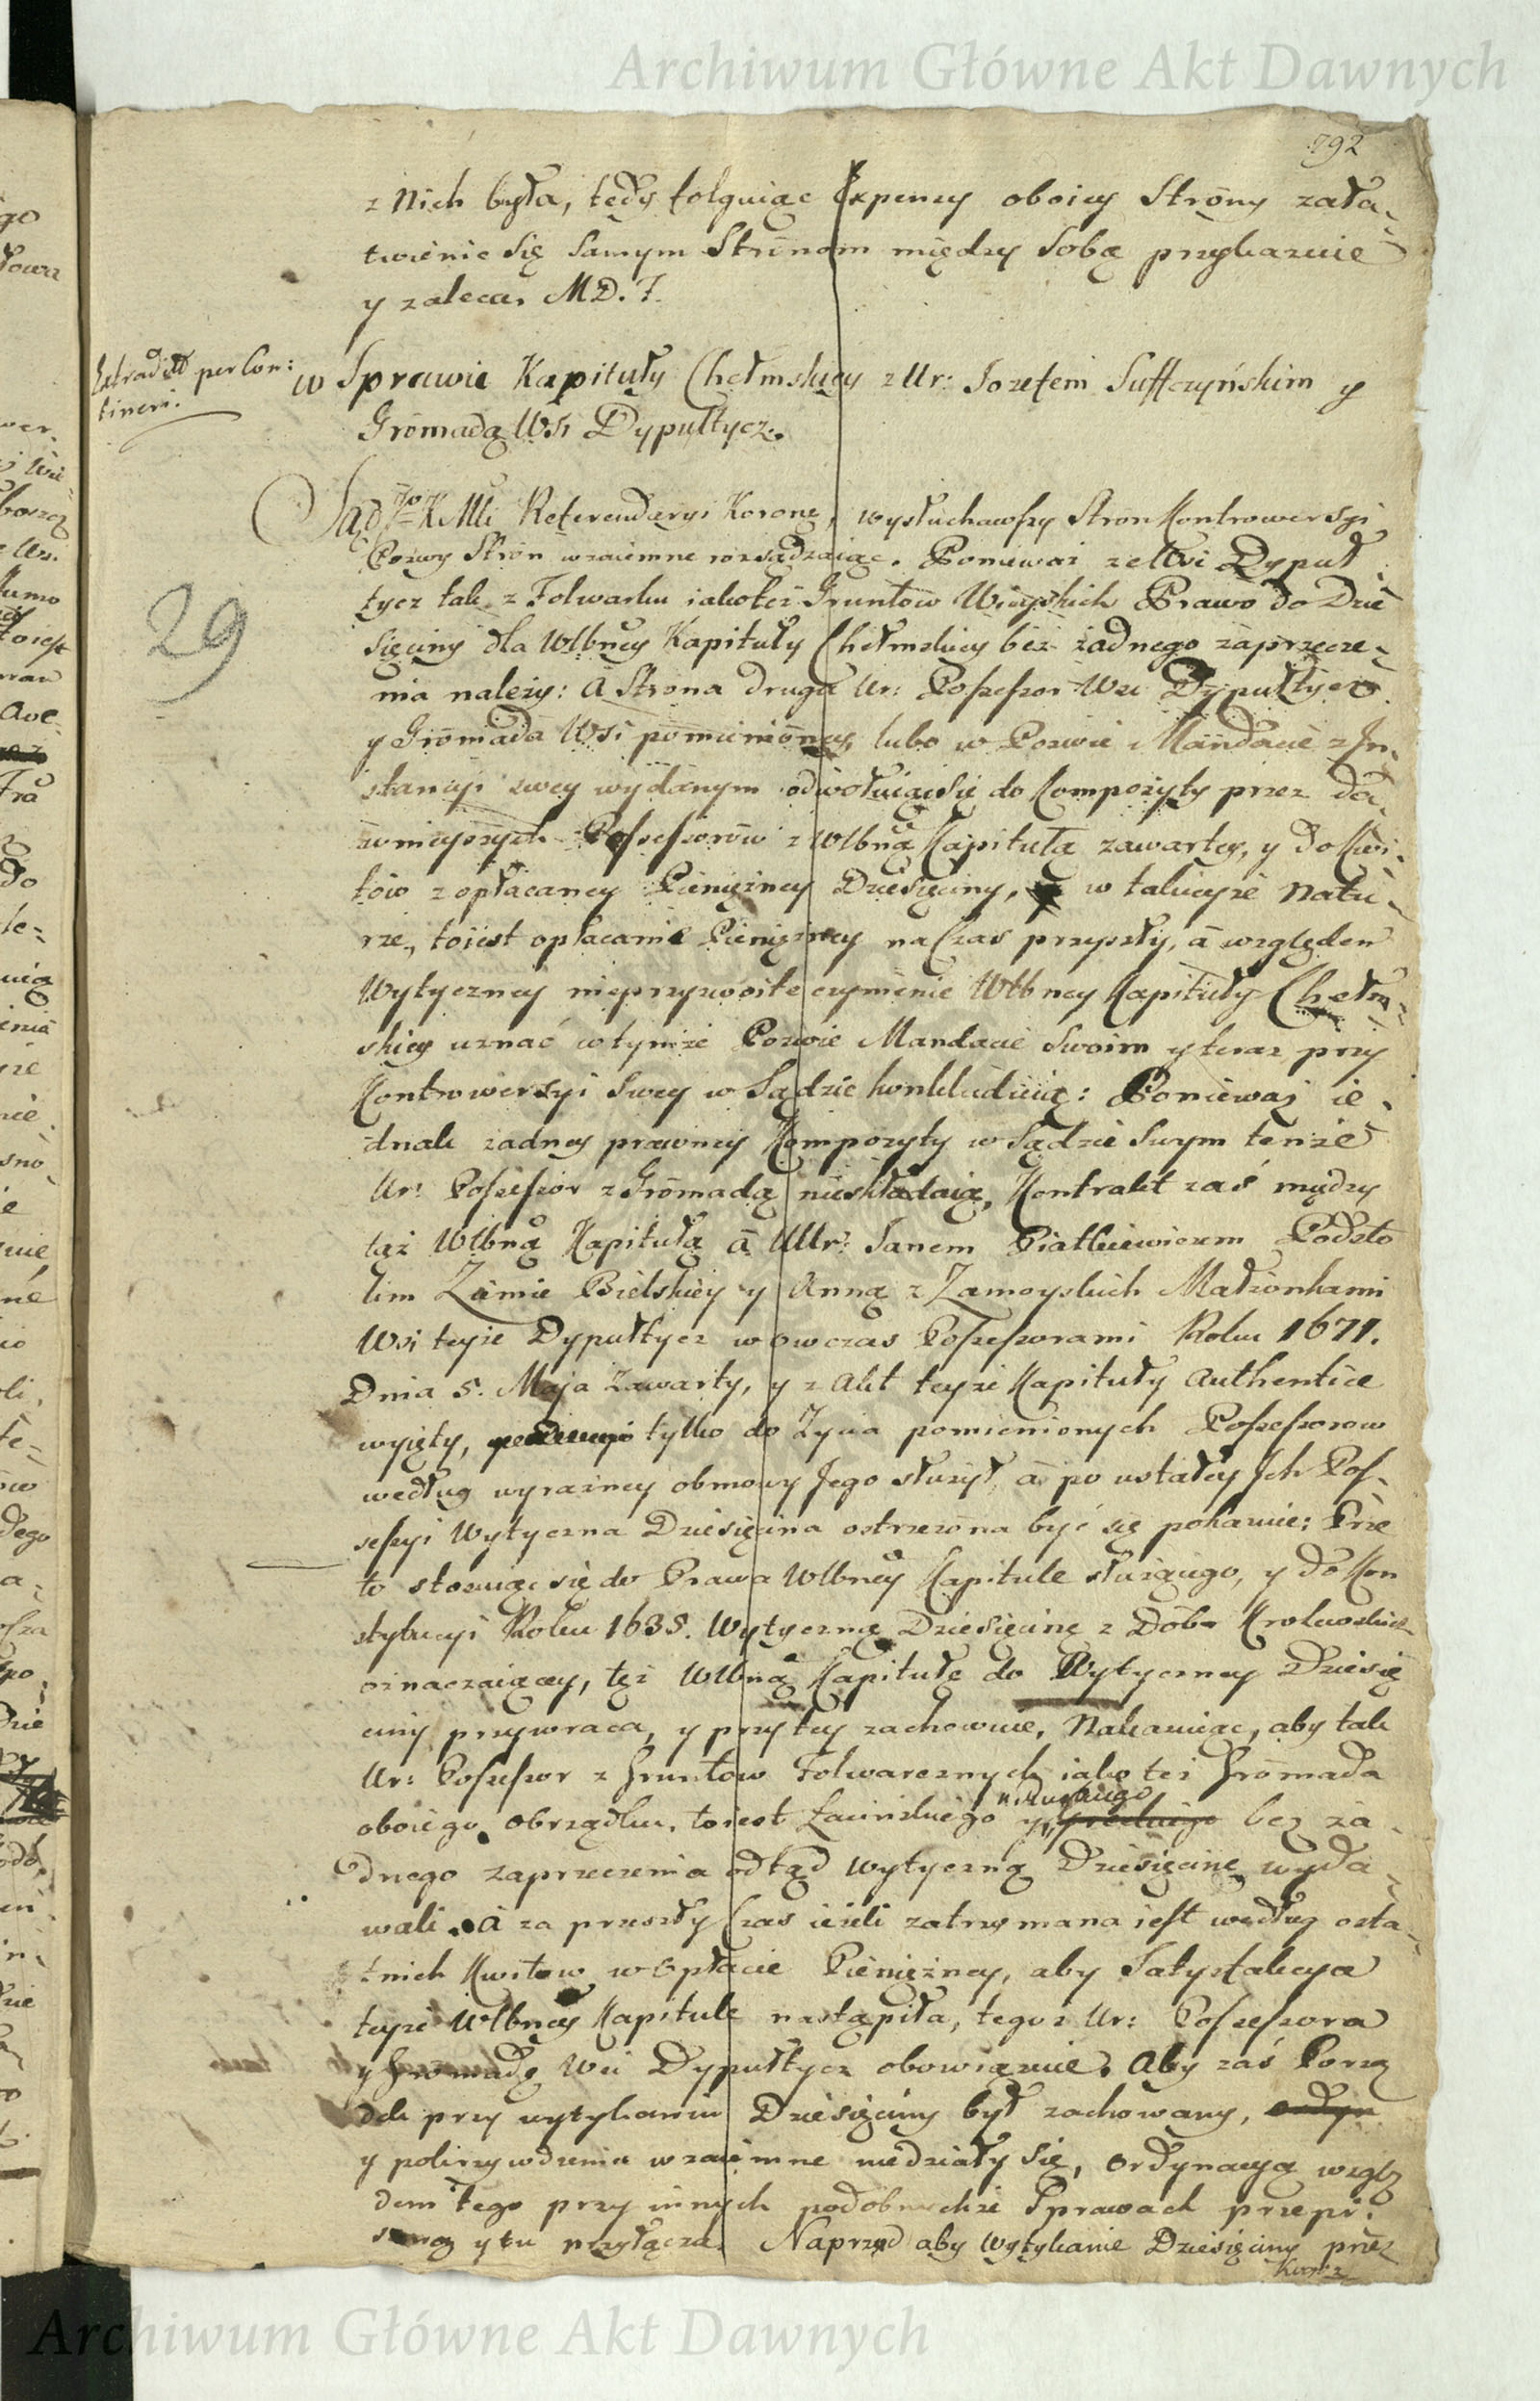 Archiwum Główne Akt Dawnych
792
z Nich była, tedy folguiąc Expensy oboiey Strony zała-
twienie się samym Stronom między sobą przykazuie
y zaleca. MD. T.
Extradit per Con:
tineri.
w Sprawie Kapituły Chełmskiey z Ur: Jozefem Suffczyńskim y
Gromadą Wsi Dypułtycz.
29
Sąd Jgo K Mći Referendaryi Koronę, wysłuchawszy Stron Kontrowersyi
Pozwy Stron wzaiemne rozsądzaiąc. Ponieważ ze Wsi Dypuł
tycz tak z Folwarku iakoteż Gruntow Wieyskich Prawo do Dzie
sięciny dla Wlbney Kapituły Chełmskiey bez żadnego zaprzecze-
nia należy: A Strona druga Ur: Possessor Wsi Dypułtycz
y Gromada Wsi pomienioney, lubo w Pozwie Mandacie z In-
stancyi swey wydanym odwołuiąc się do Kompozyty przez da-
wnieyszych Possessorów z Wlbną Kapitułą zawartey, y do Kwi-
tów z opłacaney Pieniężney Dziesięciny, w takieyże Natu-
rze, toiest opłacanie Pieniężney na Czas przyszły, a względem
Wytyczney nieprzyzwoite czynienie Wlbney Kapituły Chełm-
skiey uznać w tymże Pozwie Mandacie Swoim y teraz przy
Kontrowersyi Swey w Sądzie konkluduią: Ponieważ ie-
dnak żadney prawney Kompozyty w Sądzie Swym tenże
Ur: Possessor z Gromadą nieskładaią, Kontrakt zaś między
tąż Wlbną Kapitułą a UUr: Janem Piatkiewiczem Podsto
lim Ziemie Bielskiey y Anną z Zamoyskich Małżonkami
Wsi teyże Dypułtycz wowczas Possessorami Roku 1671.
Dnia 5. Maja Zawarty, y z Akt teyże Kapituły Authentice
wyięty, tylko do Życia pomienionych Possessorow
według wyraźney obmowy Jego służył, a po ustałey Ich Pos-
sessyi Wytyczna Dziesięcina ostrzeżona być się pokazuie: Prze
to stosuiąc się do Prawa Wlbney Kapitule służącego, y do Kon
stytucyi Roku 1635. Wytyczną Dziesięcinę z Dóbr Krolewskich
oznaczaiącey, też Wlbną Kapitułę do Wytyczney Dziesię
ciny przywraca, y przy tey zachowuie, Nakazuiąc, aby tak
Ur: Possessor z Gruntow Folwarcznych iako też Gromada
oboiego Obrządku, toiest Łacinskiego y bez ża-
dnego zaprzeczenia odtąd wytyczną Dziesięcinę wyda-
wali. A za przeszły Czas ieżeli zatrzymana iest według osta-
tnich Kwitow w Opłacie Pieniężney, aby Satysfakcya
teyże Wlbney Kapitule nastąpiła, tegoż Ur: Possessora
y Gromadę Wsi Dypułtycz obowiązuie. Aby zaś Porzą
dek przy wytykaniu Dziesięciny był zachowany, ordyn
y pokrzywdzenia wzaiemne niedziały się, Ordynacyą wzglę
dem tego przy innych podobnychże Sprawach przepi-
saną y tu przyłącza. Naprzod aby Wytykanie Dziesięciny przez
Archiwum Główne Akt Dawnych